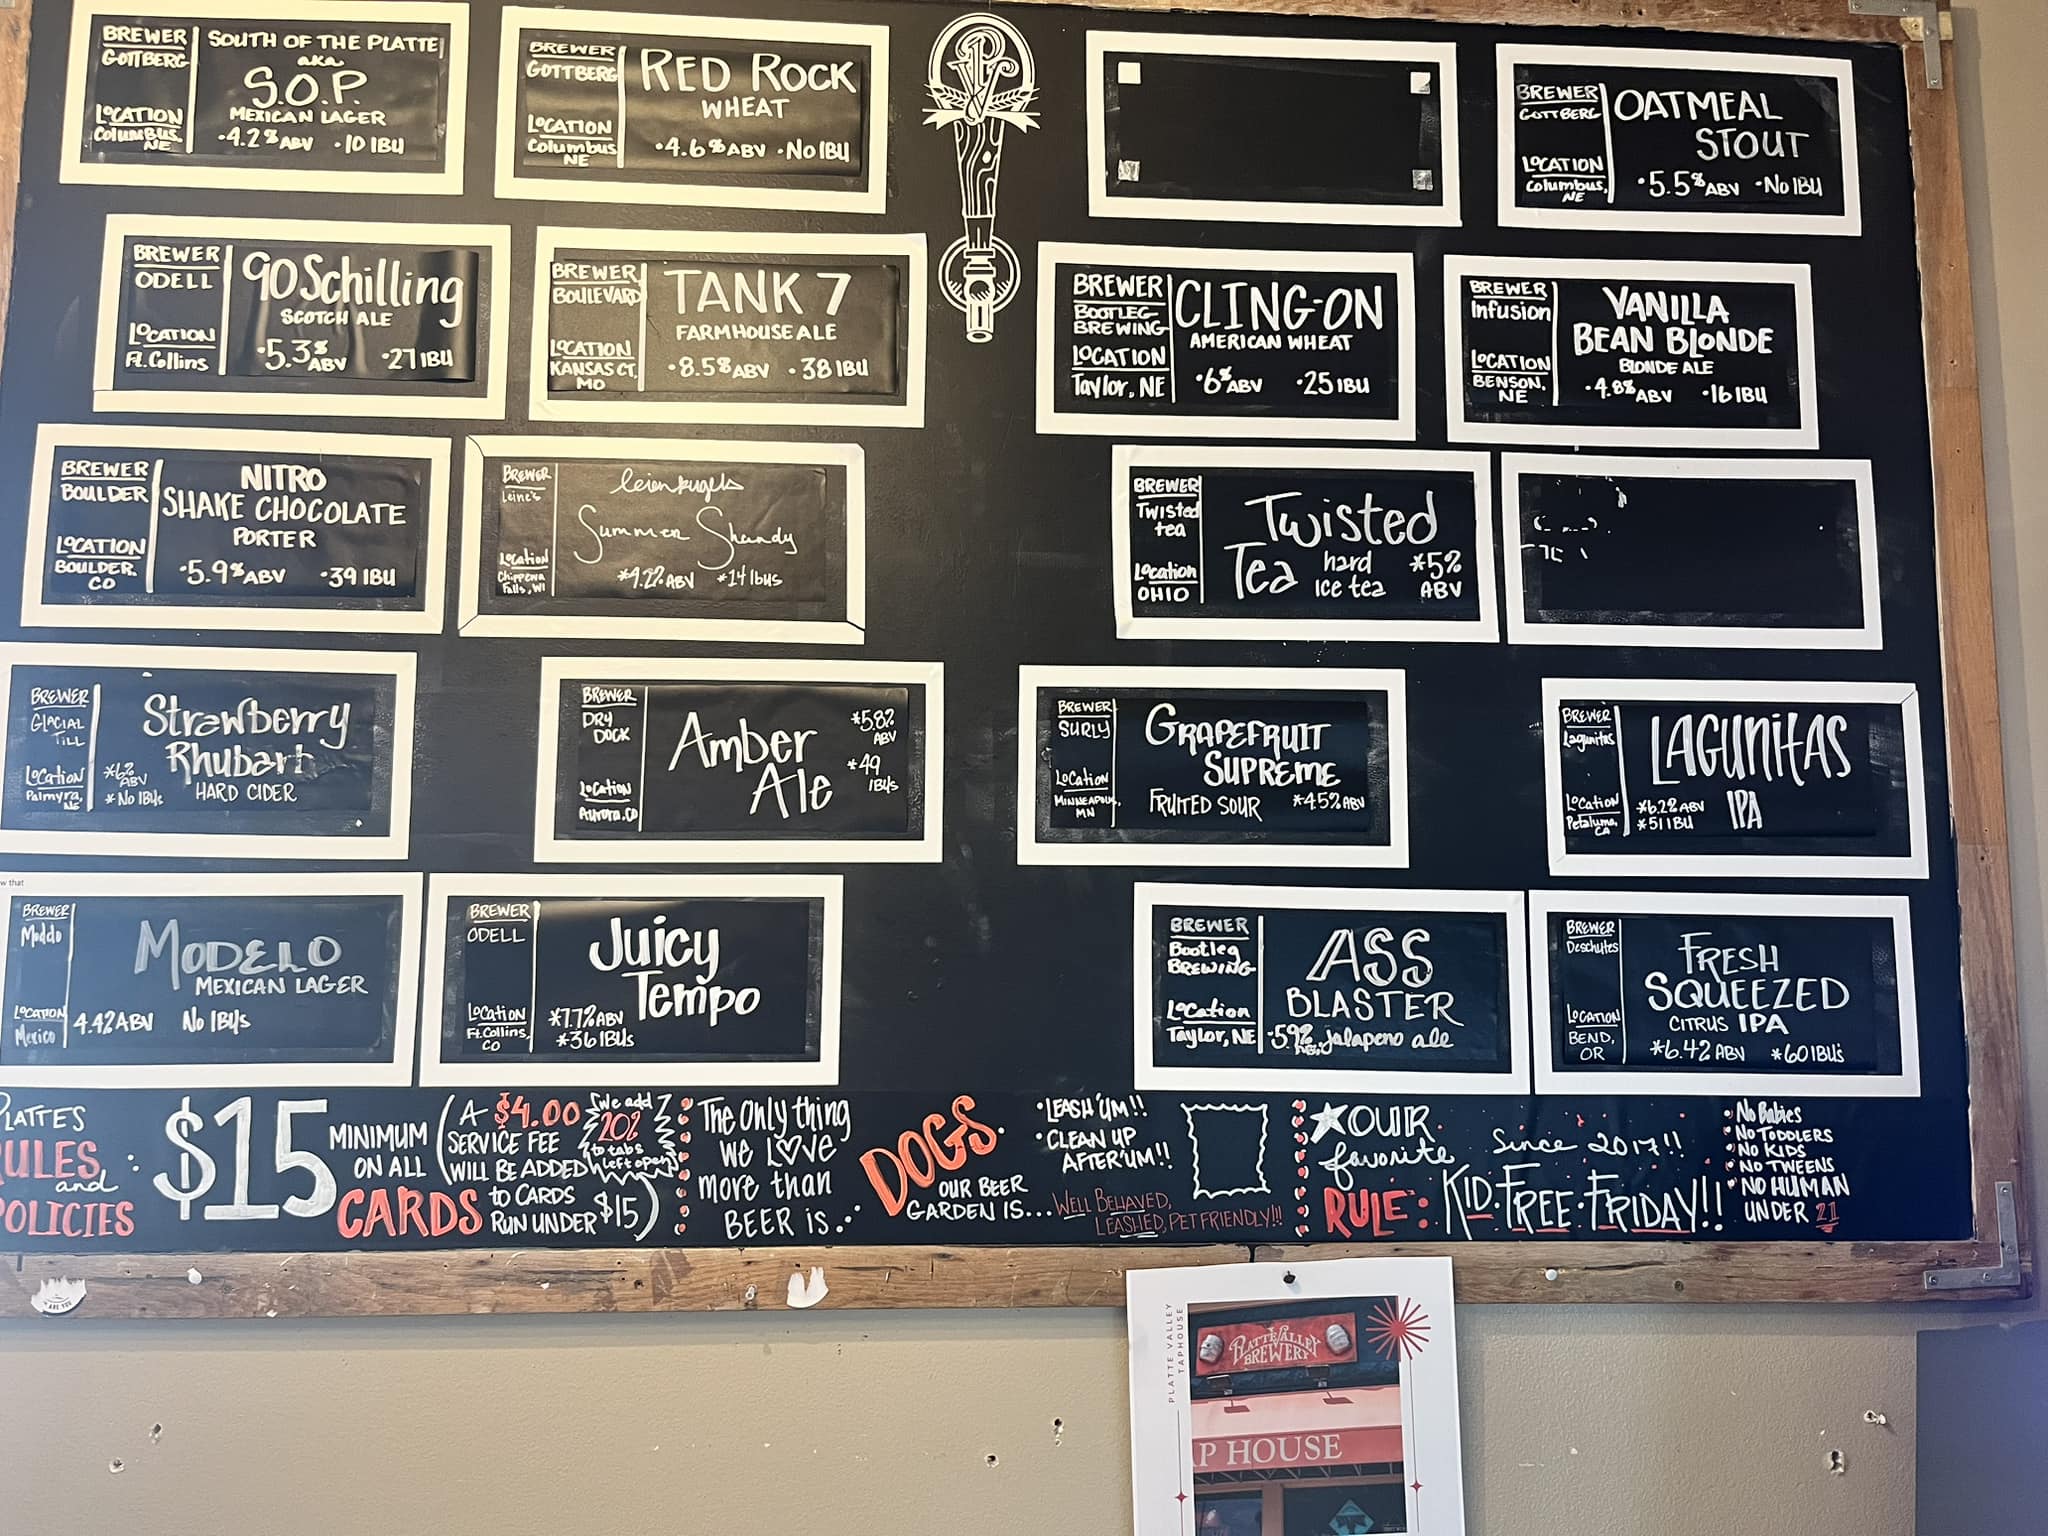 BREWER
GOTTBERG
LOCATION
Columbus,
NE
SOUTH OF THE PLATTE
aka
S.O.P.
MEXICAN LAGER
•4.2% ABV •10 IBU
BREWER
GOTTBERG
LOCATION
Columbus
NE
RED ROCK
WHEAT
•4.6% ABV •No IBU
BREWER
GOTTBERG
LOCATION
Columbus,
NE
OATMEAL
STOUT
•5.5% ABV •No IBU
BREWER
ODELL
LOCATION
Ft. Collins
90 Schilling
SCOTCH ALE
•5.3% ABV •27 IBU
BREWER
BOULEVARD
LOCATION
KANSAS CT,
MO
TANK 7
FARMHOUSE ALE
•8.5% ABV •38 IBU
BREWER
BOOTLEG
BREWING
LOCATION
Taylor, NE
CLING-ON
AMERICAN WHEAT
•6% ABV •25 IBU
BREWER
Infusion
LOCATION
BENSON,
NE
VANILLA
BEAN BLONDE
BLONDE ALE
•4.8% ABV •16 IBU
BREWER
BOULDER
LOCATION
BOULDER,
CO
NITRO
SHAKE CHOCOLATE
PORTER
•5.9% ABV •39 IBU
BREWER
Leine's
Location
Chippewa
Falls, WI
leienkugels
Summer Shandy
*4.2% ABV *14 ibus
BREWER
Twisted
tea
Location
OHIO
Twisted
Tea hard
Ice tea
*5%
ABV
BREWER
GLACIAL
TILL
Location
Palmyra,
NE
Strawberry
Rhubarb
HARD CIDER
*6%
ABV
* No IBUs
BREWER
DRY
DOCK
LOCATION
Aurora, CO
Amber
Ale
*5.8%
ABV
*49
IBUs
BREWER
SURLY
LOCATION
MINNEAPOLIS,
MN
GRAPEFRUIT
SUPREME
FRUITED SOUR *4.5% ABV
BREWER
Lagunitas
Location
Petaluma,
CA
LAGUNITAS
IPA
*6.2% ABV
*51 IBU
w that
BREWER
Modelo
LOCATION
Mexico
MODELO
MEXICAN LAGER
4.4% ABV No IBUs
BREWER
ODELL
LOCATION
Ft. Collins,
CO
Juicy
Tempo
*7.7% ABV
*36 IBUs
BREWER
Bootleg
BREWING
Location
Taylor, NE
ASS
BLASTER
•5.9% jalapeno ale
BREWER
Deschutes
LOCATION
BEND,
OR
FRESH
SQUEEZED
CITRUS IPA
*6.4% ABV *60 IBU's
PLATTES
RULES
and
POLICIES
:
$15
MINIMUM
ON ALL
CARDS
(A $4.00
SERVICE FEE
WILL BE ADDED
to CARDS
RUN UNDER $15)
We add
20%
to tabs
left open
The only thing
we LOVE
more than
BEER is...
DOGS.
•LEASH 'UM!!
•CLEAN UP
AFTER 'UM!!
OUR BEER
GARDEN IS...
WELL BEHAVED,
LEASHED, PET FRIENDLY!!!
OUR
favorite
RULE:
Since 2017!!
KID•FREE•FRIDAY!!
•No Babies
•No TODDLERS
•No KIDS
•No TWEENS
•NO HUMAN
UNDER 21
ARE YOU
PLATTE VALLEY
TAPHOUSE
PLATTE VALLEY
BREWERY
AP HOUSE